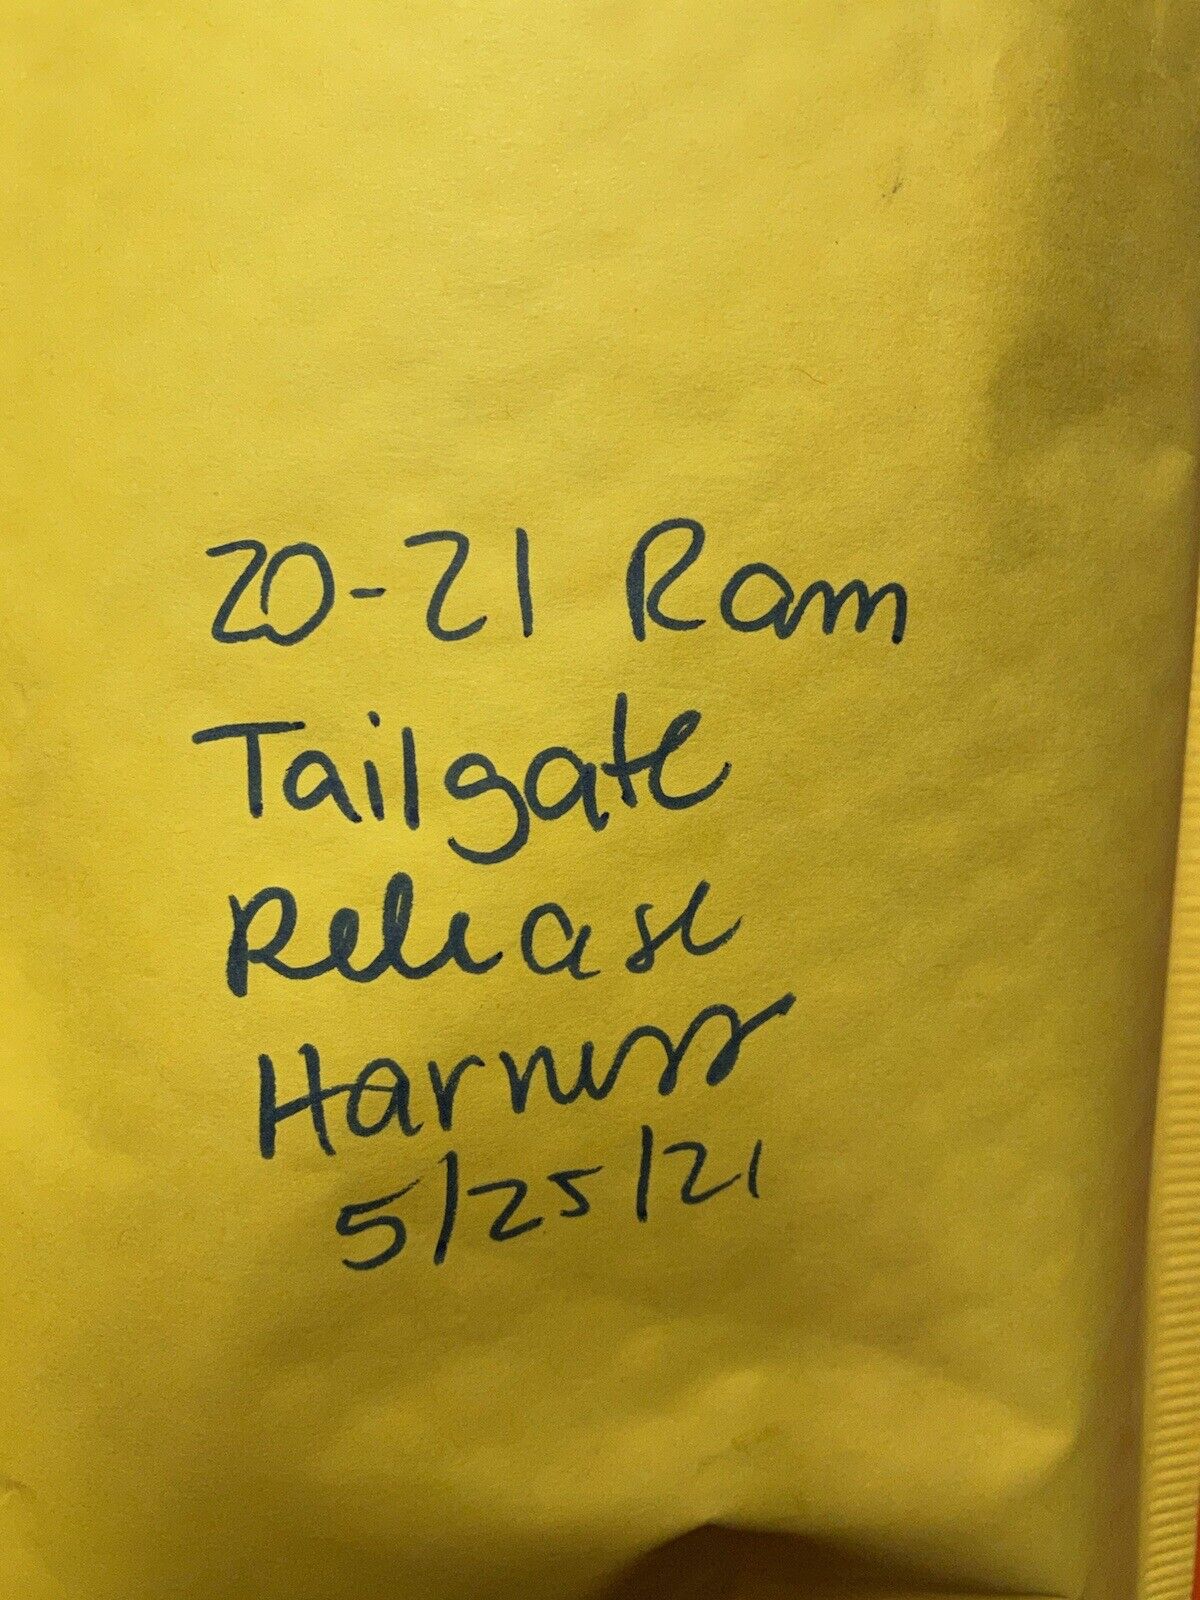 20-21 Ram
Tailgate
Release
Harness
5/25/21